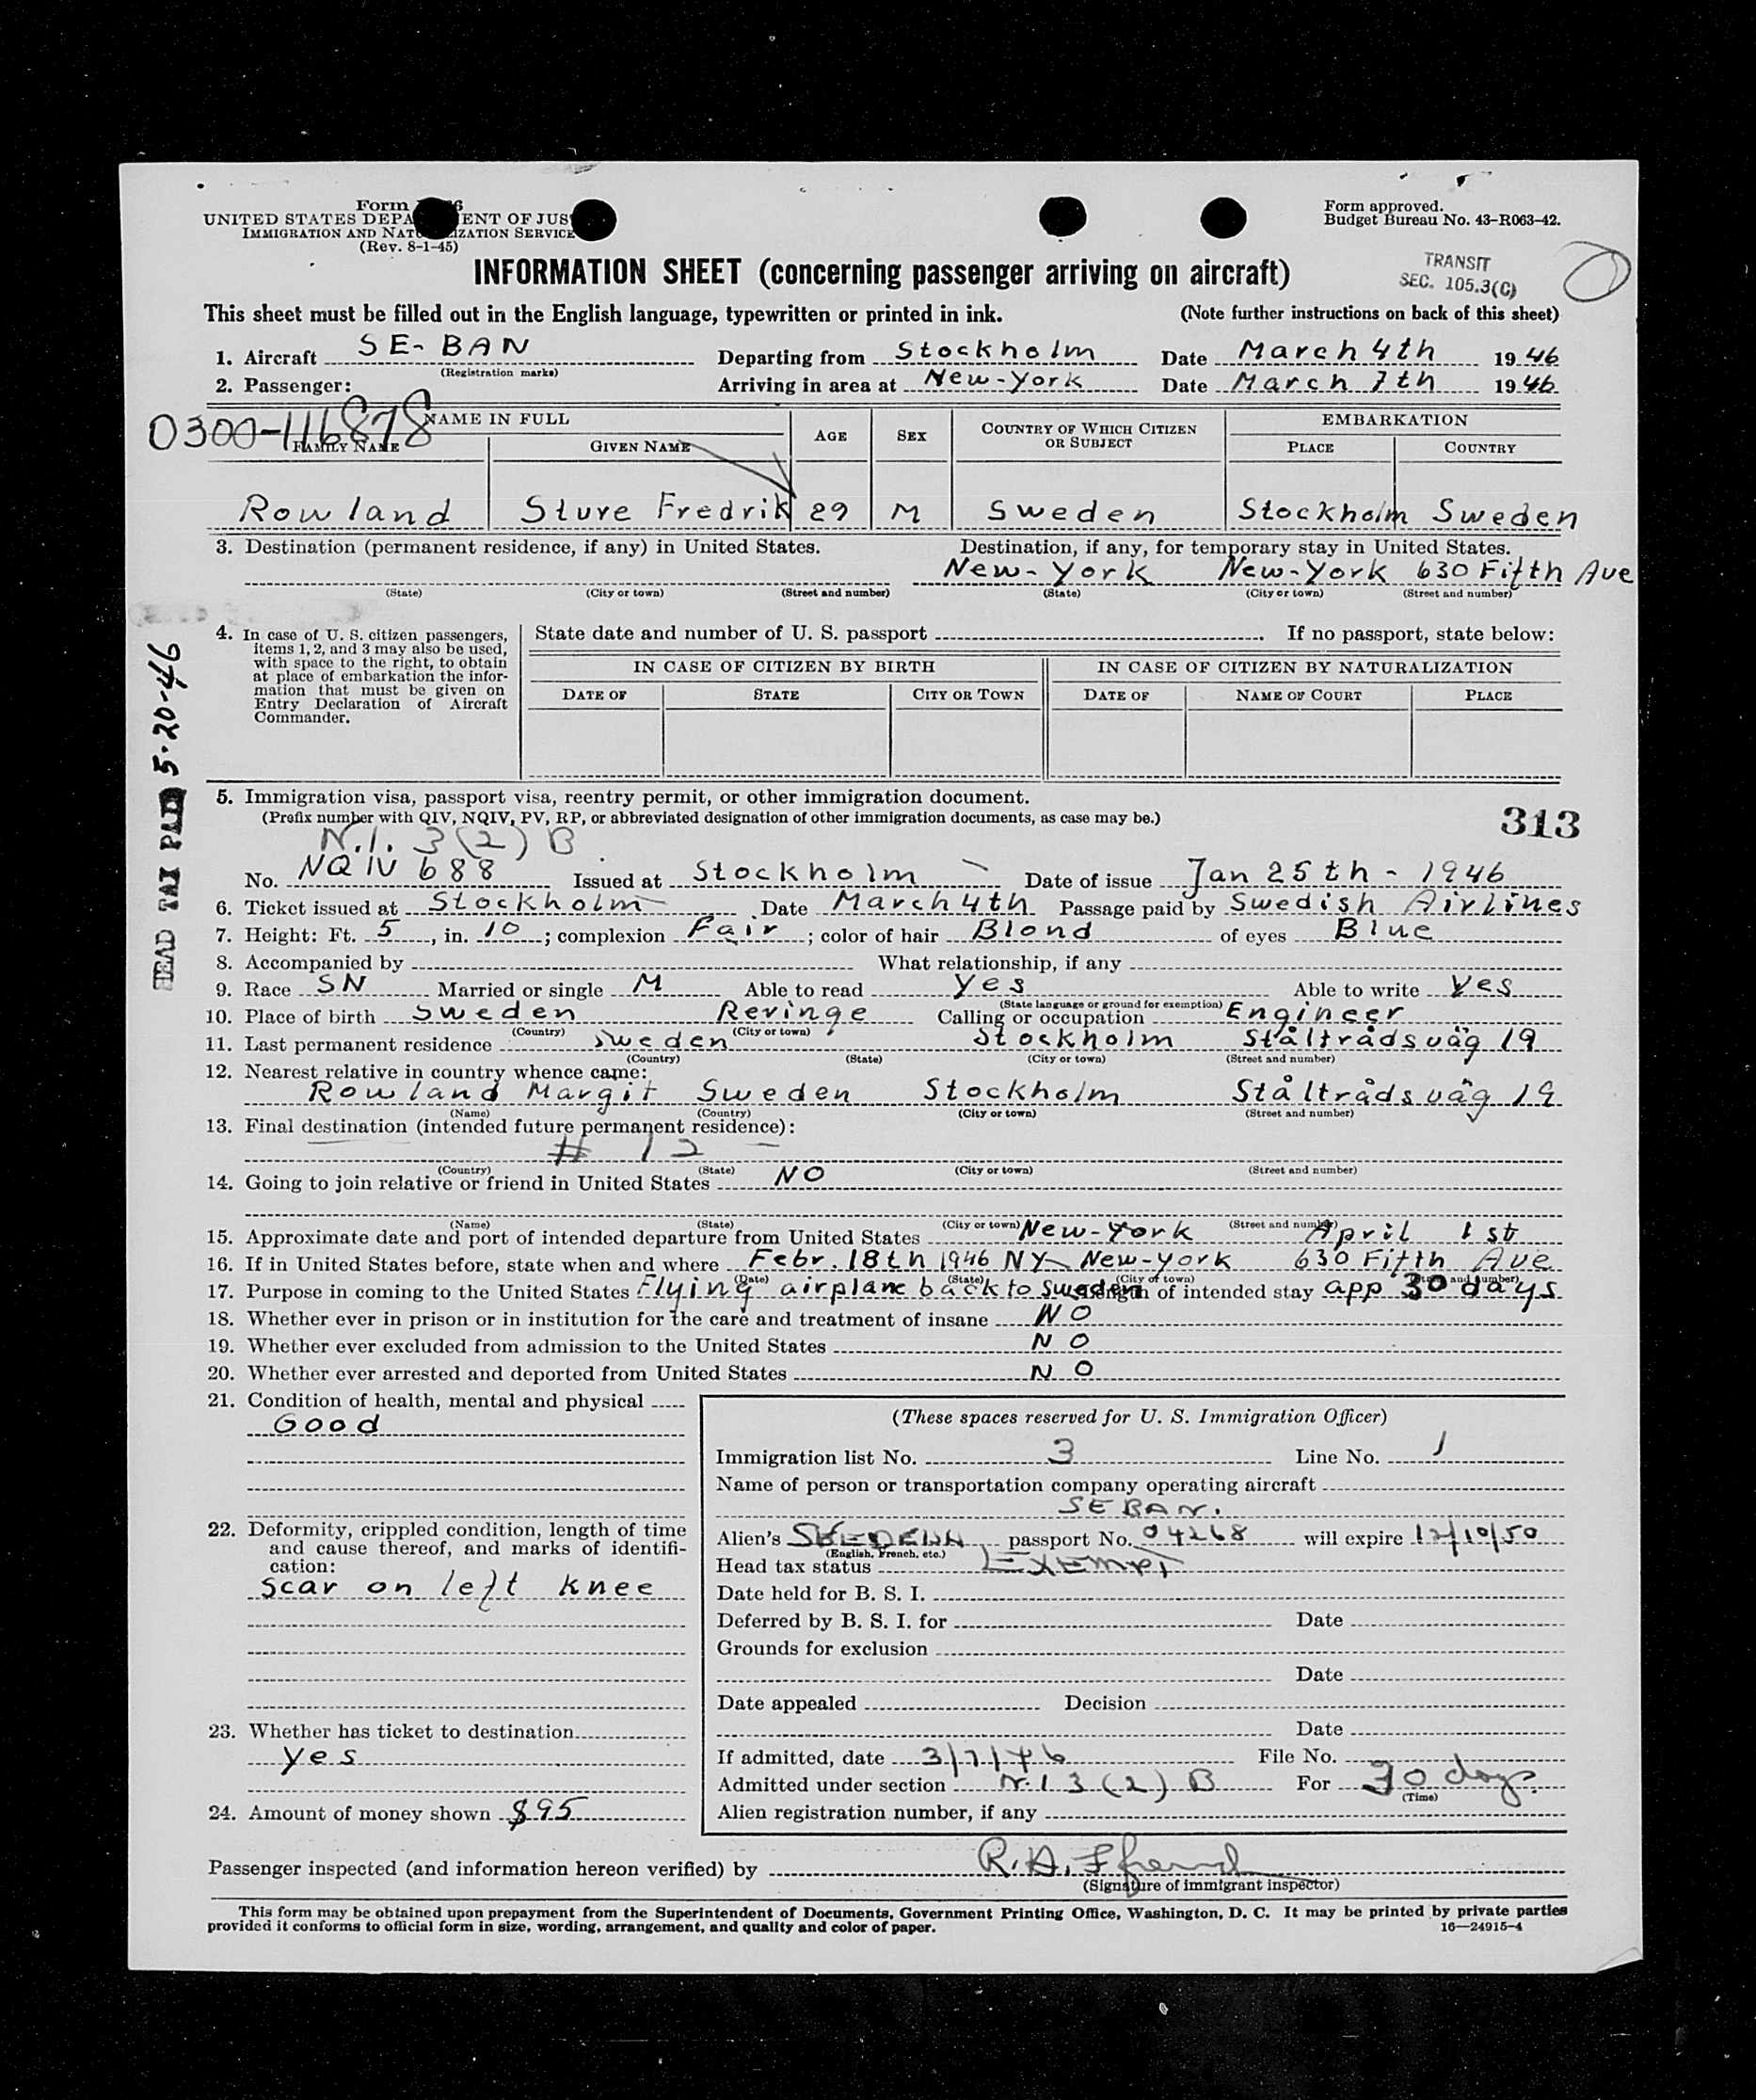 Form
UNITED STATES DEPA ENT OF JUS
IMMIGRATION AND NATU IZATION SERVICE
(Rev. 8-1-45)
Form approved.
Budget Bureau No. 43-R063-42.
INFORMATION SHEET (concerning passenger arriving on aircraft)
TRANSIT
SEC. 105.3(C)
This sheet must be filled out in the English language, typewritten or printed in ink. (Note further instructions on back of this sheet)
1. Aircraft SE-BAN Departing from Stockholm Date March 4th 1946
(Registration marks)
2. Passenger: Arriving in area at New-York Date March 7th 1946
0300-116878
NAME IN FULL AGE SEX COUNTRY OF WHICH CITIZEN OR SUBJECT EMBARKATION
FAMILY NAME GIVEN NAME PLACE COUNTRY
Rowland Sture Fredrik 29 M Sweden Stockholm Sweden
3. Destination (permanent residence, if any) in United States. Destination, if any, for temporary stay in United States.
New-York New-York 630 Fifth Ave
(State) (City or town) (Street and number) (State) (City or town) (Street and number)
4. In case of U. S. citizen passengers, items 1, 2, and 3 may also be used, with space to the right, to obtain at place of embarkation the information that must be given on Entry Declaration of Aircraft Commander.
State date and number of U. S. passport . If no passport, state below:
IN CASE OF CITIZEN BY BIRTH IN CASE OF CITIZEN BY NATURALIZATION
DATE OF STATE CITY OR TOWN DATE OF NAME OF COURT PLACE
HEAD TAX PAID 5-20-46
5. Immigration visa, passport visa, reentry permit, or other immigration document.
(Prefix number with QIV, NQIV, PV, RP, or abbreviated designation of other immigration documents, as case may be.)
313
N.I. 3(2) B
No. NQIV 688 Issued at Stockholm Date of issue Jan 25th - 1946
6. Ticket issued at Stockholm Date March 4th Passage paid by Swedish Airlines
7. Height: Ft. 5, in. 10; complexion Fair; color of hair Blond of eyes Blue
8. Accompanied by What relationship, if any
9. Race SN Married or single M Able to read Yes Able to write Yes
(State language or ground for exemption)
10. Place of birth Sweden Revinge Calling or occupation Engineer
(Country) (City or town)
11. Last permanent residence Sweden Stockholm Ståltrådsväg 19
(Country) (State) (City or town) (Street and number)
12. Nearest relative in country whence came:
Rowland Margit Sweden Stockholm Ståltrådsväg 19
(Name) (Country) (City or town) (Street and number)
13. Final destination (intended future permanent residence):
# 12
(Country) (State) (City or town) (Street and number)
14. Going to join relative or friend in United States NO
(Name) (State) (City or town) (Street and number)
15. Approximate date and port of intended departure from United States New-York April 1st
16. If in United States before, state when and where Febr. 18th 1946 NY New-York 630 Fifth Ave
(Date) (State) (City or town) (Street and number)
17. Purpose in coming to the United States Flying airplane back to Sweden Length of intended stay app 30 days
18. Whether ever in prison or in institution for the care and treatment of insane NO
19. Whether ever excluded from admission to the United States NO
20. Whether ever arrested and deported from United States NO
21. Condition of health, mental and physical
Good
22. Deformity, crippled condition, length of time and cause thereof, and marks of identification:
Scar on left knee
23. Whether has ticket to destination
Yes
24. Amount of money shown $95
(These spaces reserved for U. S. Immigration Officer)
Immigration list No. 3 Line No. 1
Name of person or transportation company operating aircraft
SEBAN.
Alien's passport No. 04268 will expire 12/10/50
(English, French, etc.)
Head tax status EXEMPT
Date held for B. S. I.
Deferred by B. S. I. for Date
Grounds for exclusion
Date
Date appealed Decision
Date
If admitted, date 3/7/46 File No.
Admitted under section N.I 3 (2) B For 30 days
(Time)
Alien registration number, if any
Passenger inspected (and information hereon verified) by R.A.
(Signature of immigrant inspector)
This form may be obtained upon prepayment from the Superintendent of Documents, Government Printing Office, Washington, D. C. It may be printed by private parties
provided it conforms to official form in size, wording, arrangement, and quality and color of paper. 16—24915-4